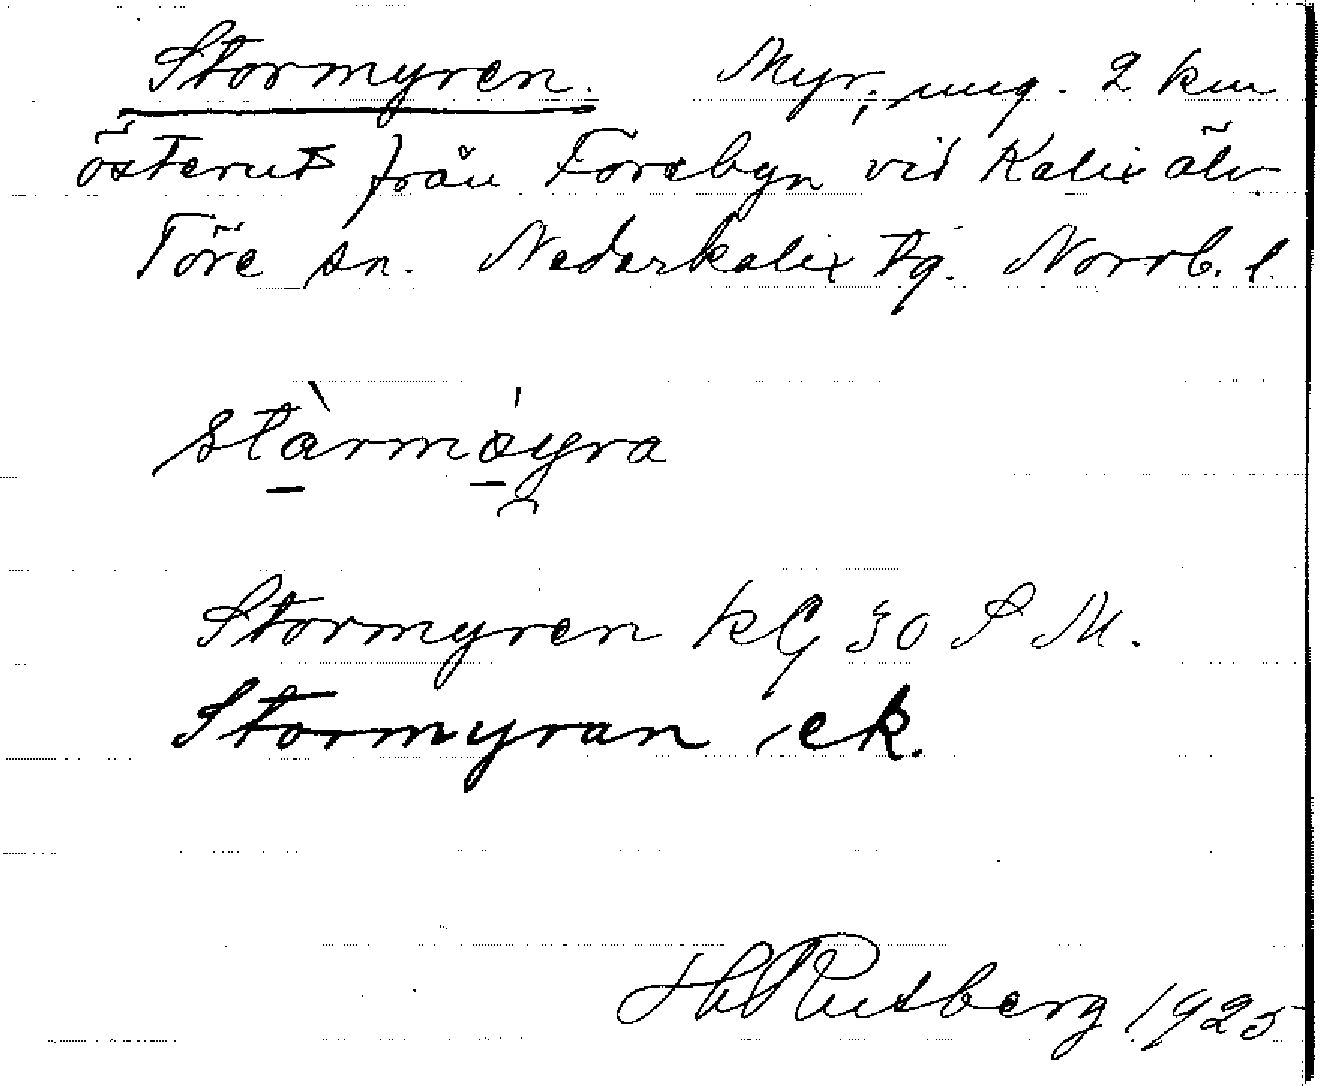 Stormyren. Myr, ung. 2 km
österut från Forsbyn vid Kalix älv
Töre sn. Nederkalix tg. Norrb. l.
stàrmǿyra
Stormyren kG 30 S M.
Stormyran ek.
Rutberg 1925